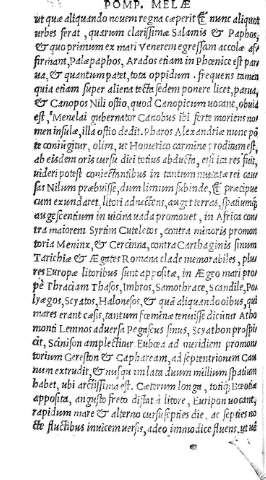 POMP. MELÆ
ut quæ aliquando neuem regna cæperit & nunc aliquot
urbes ferat, quarum clarissimæ Salamis & Paphos,
& quo primum ex mari Venerem egressam accolæ af
firmant, Palæpaphos, Arados etiam in Phœnice est par
ua, & quantum patet, tota oppidum. frequens tamen
quia etiam super aliena tecta sedem ponere licet, parua,
& Canopos Nili ostio, quod Canopicum uocant, obuia
est, Menelai gubernator Canobus ibi forte moriens no
men insulæ, illa ostio dedit. Pharos Alexandriæ nunc põ
te coniugitur, olim, ut Homerico carmine proditum est,
ab eisdem oris cursu diei totius abducta, et si ita res fuit,
uideri potest coniectantibus in tantum mutatæ rei cau
sas Nilum præbuisse, dum limum subinde, & præcipue
cum exundaret, litori adnectens, auget terras, spatiumque
augescentium in uicina uada promouet, in Africa con
tra maiorem Syrtim Euteletos, contra minoris promon
toria Meninx, & Cercinna, contra Carthaginis sinum
Tarichiæ & Ægates Romana clade memorabiles, plu
res Europæ litoribus sunt appositæ, in Ægeo mari pro
pe Thraciam Thasos, Imbros, Samothrace, Scandile, Po
lyægos, Scyatos, Halonesos, & quã aliquando oibus, qui
mares erant cæsis, tantum fœminæ tenuisse dicitur Atho
monti Lemnos aduersa Pegasus sinus, Scyathon prospi
cit, Cicinison amplectitur Eubœa ad meridiem promon
torium Gereston & Caphaream, ad septentrionem Cæn
num extrudit, & nusquam lata duum millium spatium
habet, ubi arctissima est. Cæterum longa, totique Bœotiæ
apposita, angusto freto distat à litore, Euripon uocant,
rapidum mare & alterno cursu septies die, ac septies no
cte fluctibus inuicem uersis, adeo immodice fluens, ut